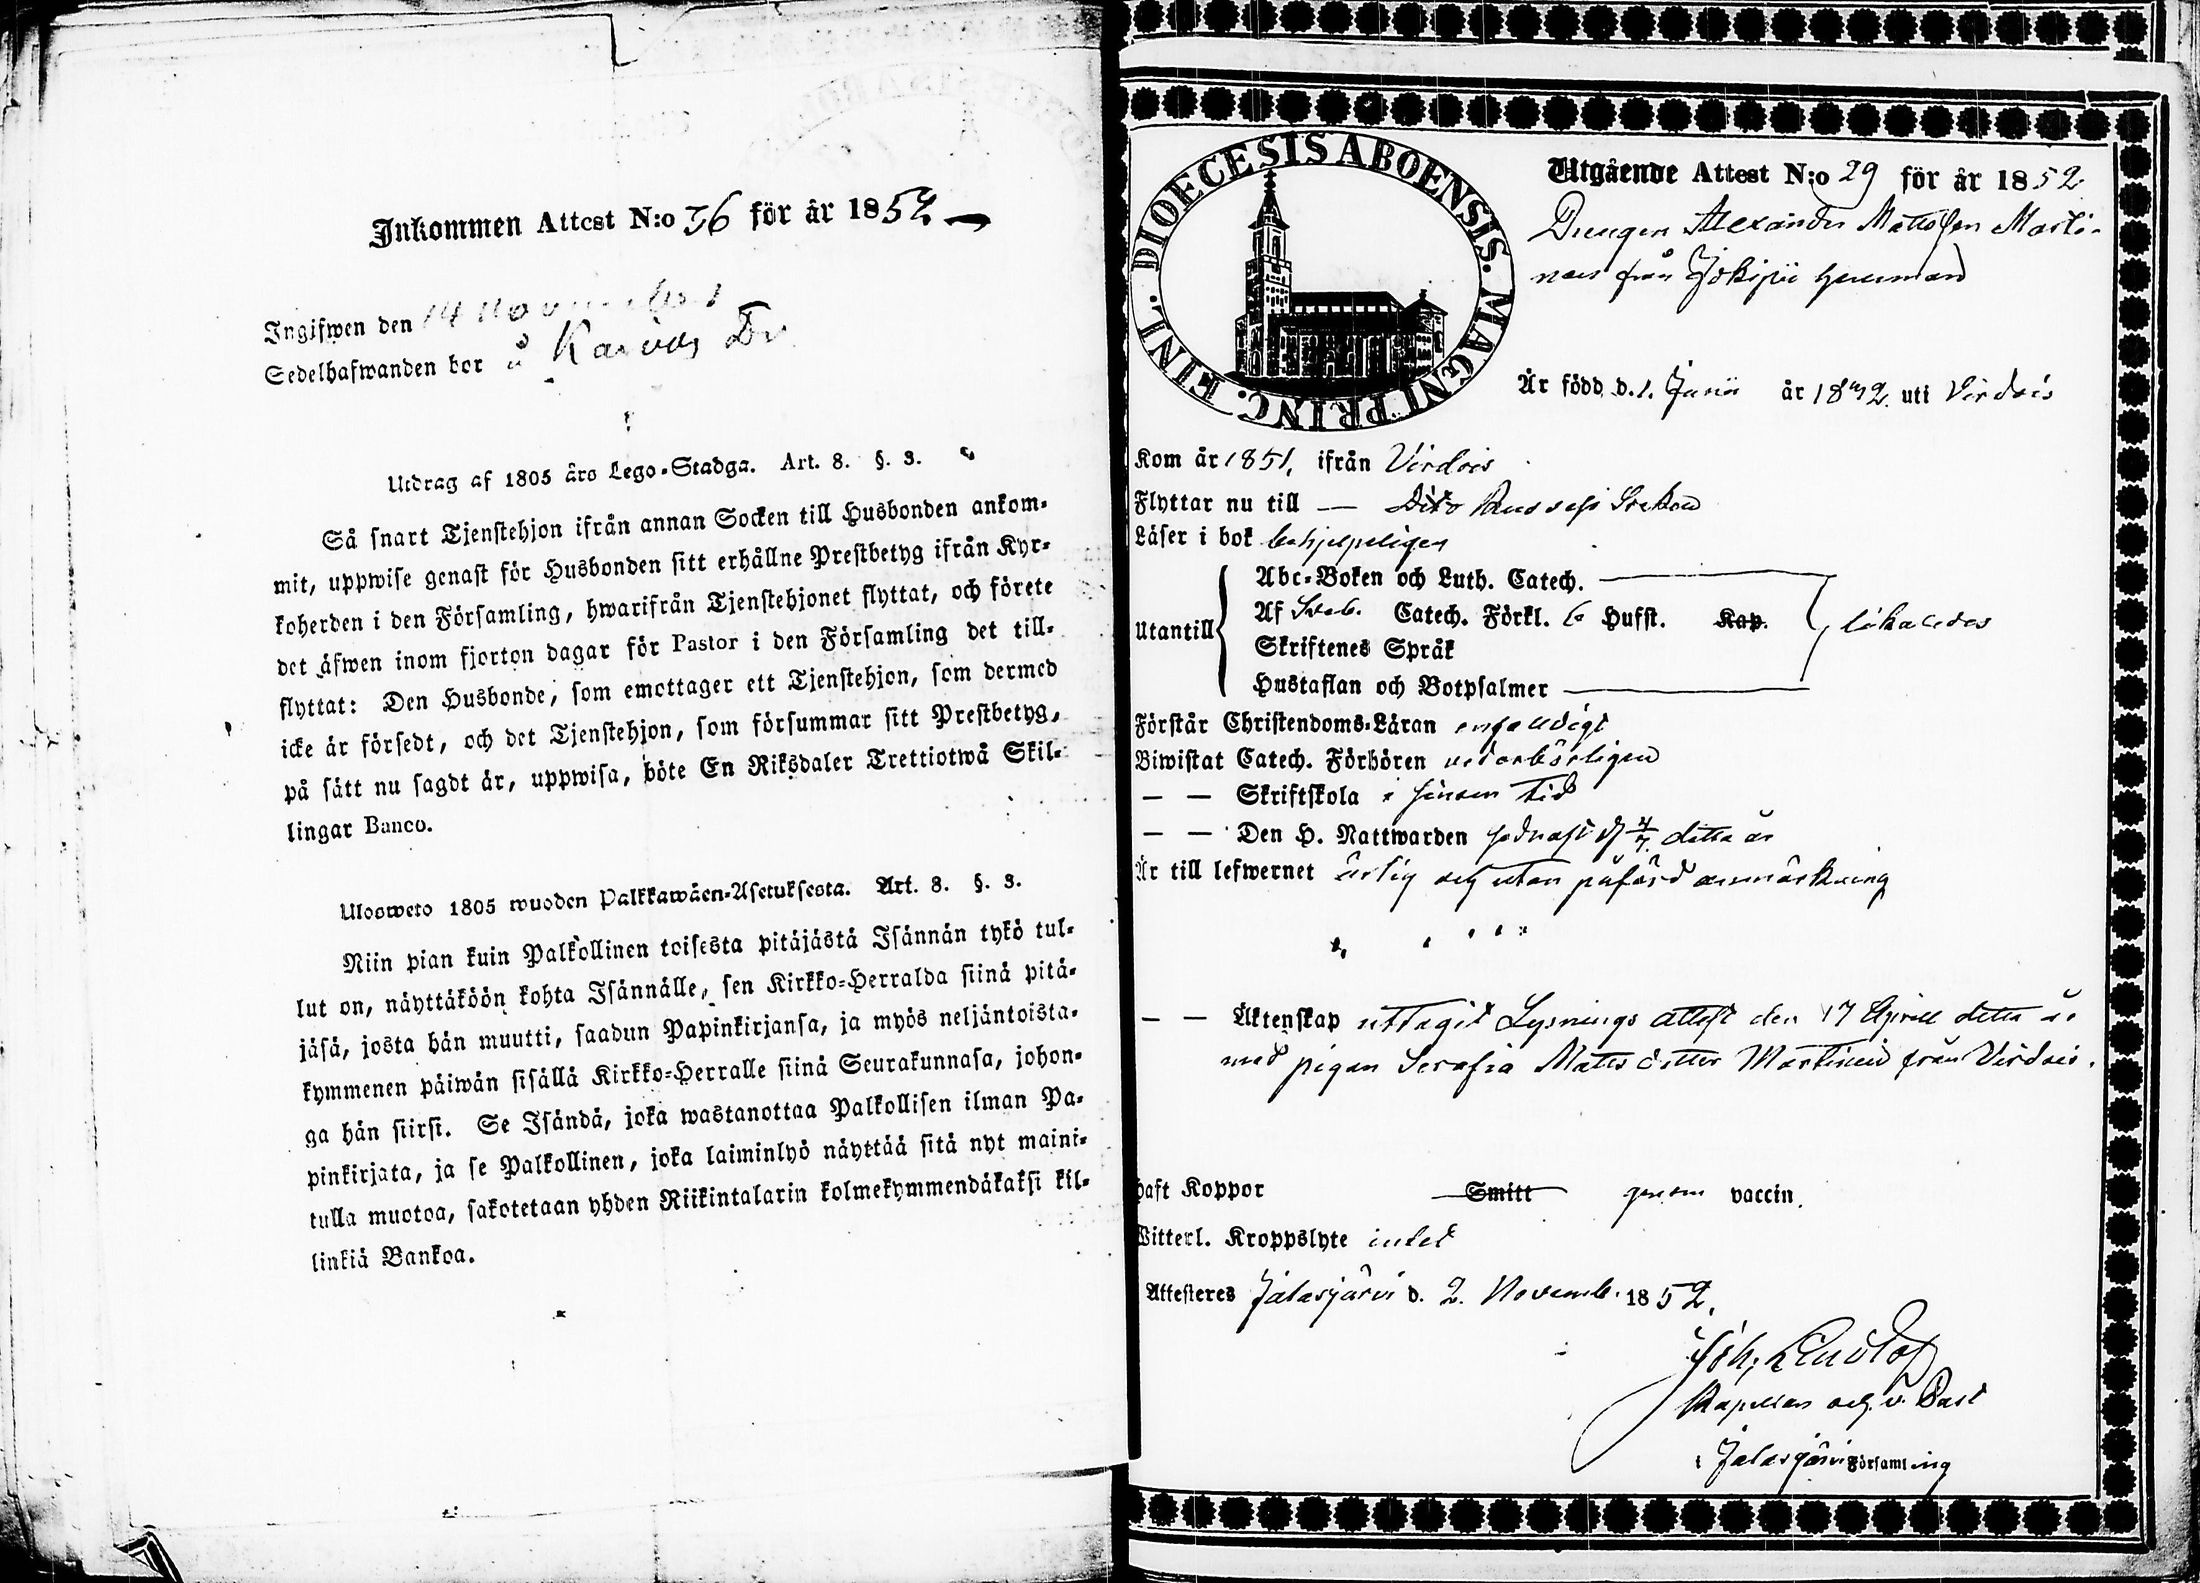 Inkommen Attest N:o 36 för år 1852
Ingifwen den 14 November
Sedelhafwanden bor å
Utdrag af 1805 års Lego-Stadga. Art. 8. §. 3.
Så snart Tjenstehjon ifrån annan Socken till Husbonden ankom-
mit, uppwise genast för Husbonden sitt erhållne Prestbetyg ifrån Kyr-
koherden i den Församling, hwarifrån Tjenstehjonet flyttat, och förete
det äfwen inom fjorton dagar för Pastor i den Församling det till-
flyttat: Den Husbonde, som emottager ett Tjenstehjon, som dermed
icke är försedt, och det Tjenstehjon, som försummar sitt Prestbetyg,
på sätt nu sagdt är, uppwisa, böte En Riksdaler Trettiotwå Skil-
lingar Banco.
Ulosweto 1805 wuoden Palkkawäen-Asetuksesta. Art. 8. §. 3.
Niin pian kuin Palkollinen toisesta pitäjästä Isännän tykö tul-
lut on, näyttäköön kohta Isännälle, sen Kirkko-Herralda siinä pitä-
jäsä, josta hän muutti, saadun Papinkirjansa, ja myös neljäntoista-
kymmenen päiwän sisällä Kirkko-Herralle siinä Seurakunnasa, johon-
ga hän siirsi. Se Isändä, joka wastanottaa Palkollisen ilman Pa-
pinkirjata, ja se Palkollinen, joka laiminlyö näyttää sitä nyt maini-
tulla muotoa, sakotetaan yhden Riikintalarin kolmekymmendäkaksi kil-
linkiä Bankoa.
DIOECESIS ABOENSIS. MAGNI PRINC. FINL.
Utgående Attest N:o 29 för år 1852
Drengen Alexander Mattsson Marti-
nen från Jokipii hemman
Är född d. 1. Junii år 1832. uti Virdois
Kom år 1851, ifrån Virdois
Flyttar nu till — Dito Socken
Läser i bok behjelpeligen
Abc-Boken och Luth. Catech.
Utantill Af Sveb. Catech. Förkl. 6 Hufst. Kap.
Skriftenes Språk
Hustaflan och Botpsalmer
Förstår Christendoms-Läran enfaldigt
Biwistat Catech. Förhören vederbörligen
— — Skriftskola i sinom tid
— — Den H. Nattwarden sednast d. 4/7 detta år
Är till lefwernet ärlig och utan påförd anmärkning
— — Äktenskap uttagit Lysnings attest den 17 April detta år
med pigan Serafia Matts dotter Martinen från Virdois.
haft Koppor Smitt genom vaccin.
Witterl. Kroppslyte intet
Attesteres Jalasjärvi d. 2. Novemb. 1852.
Joh. Lindlöf
Kapellan och v. Past
i Jalasjärvi Församling